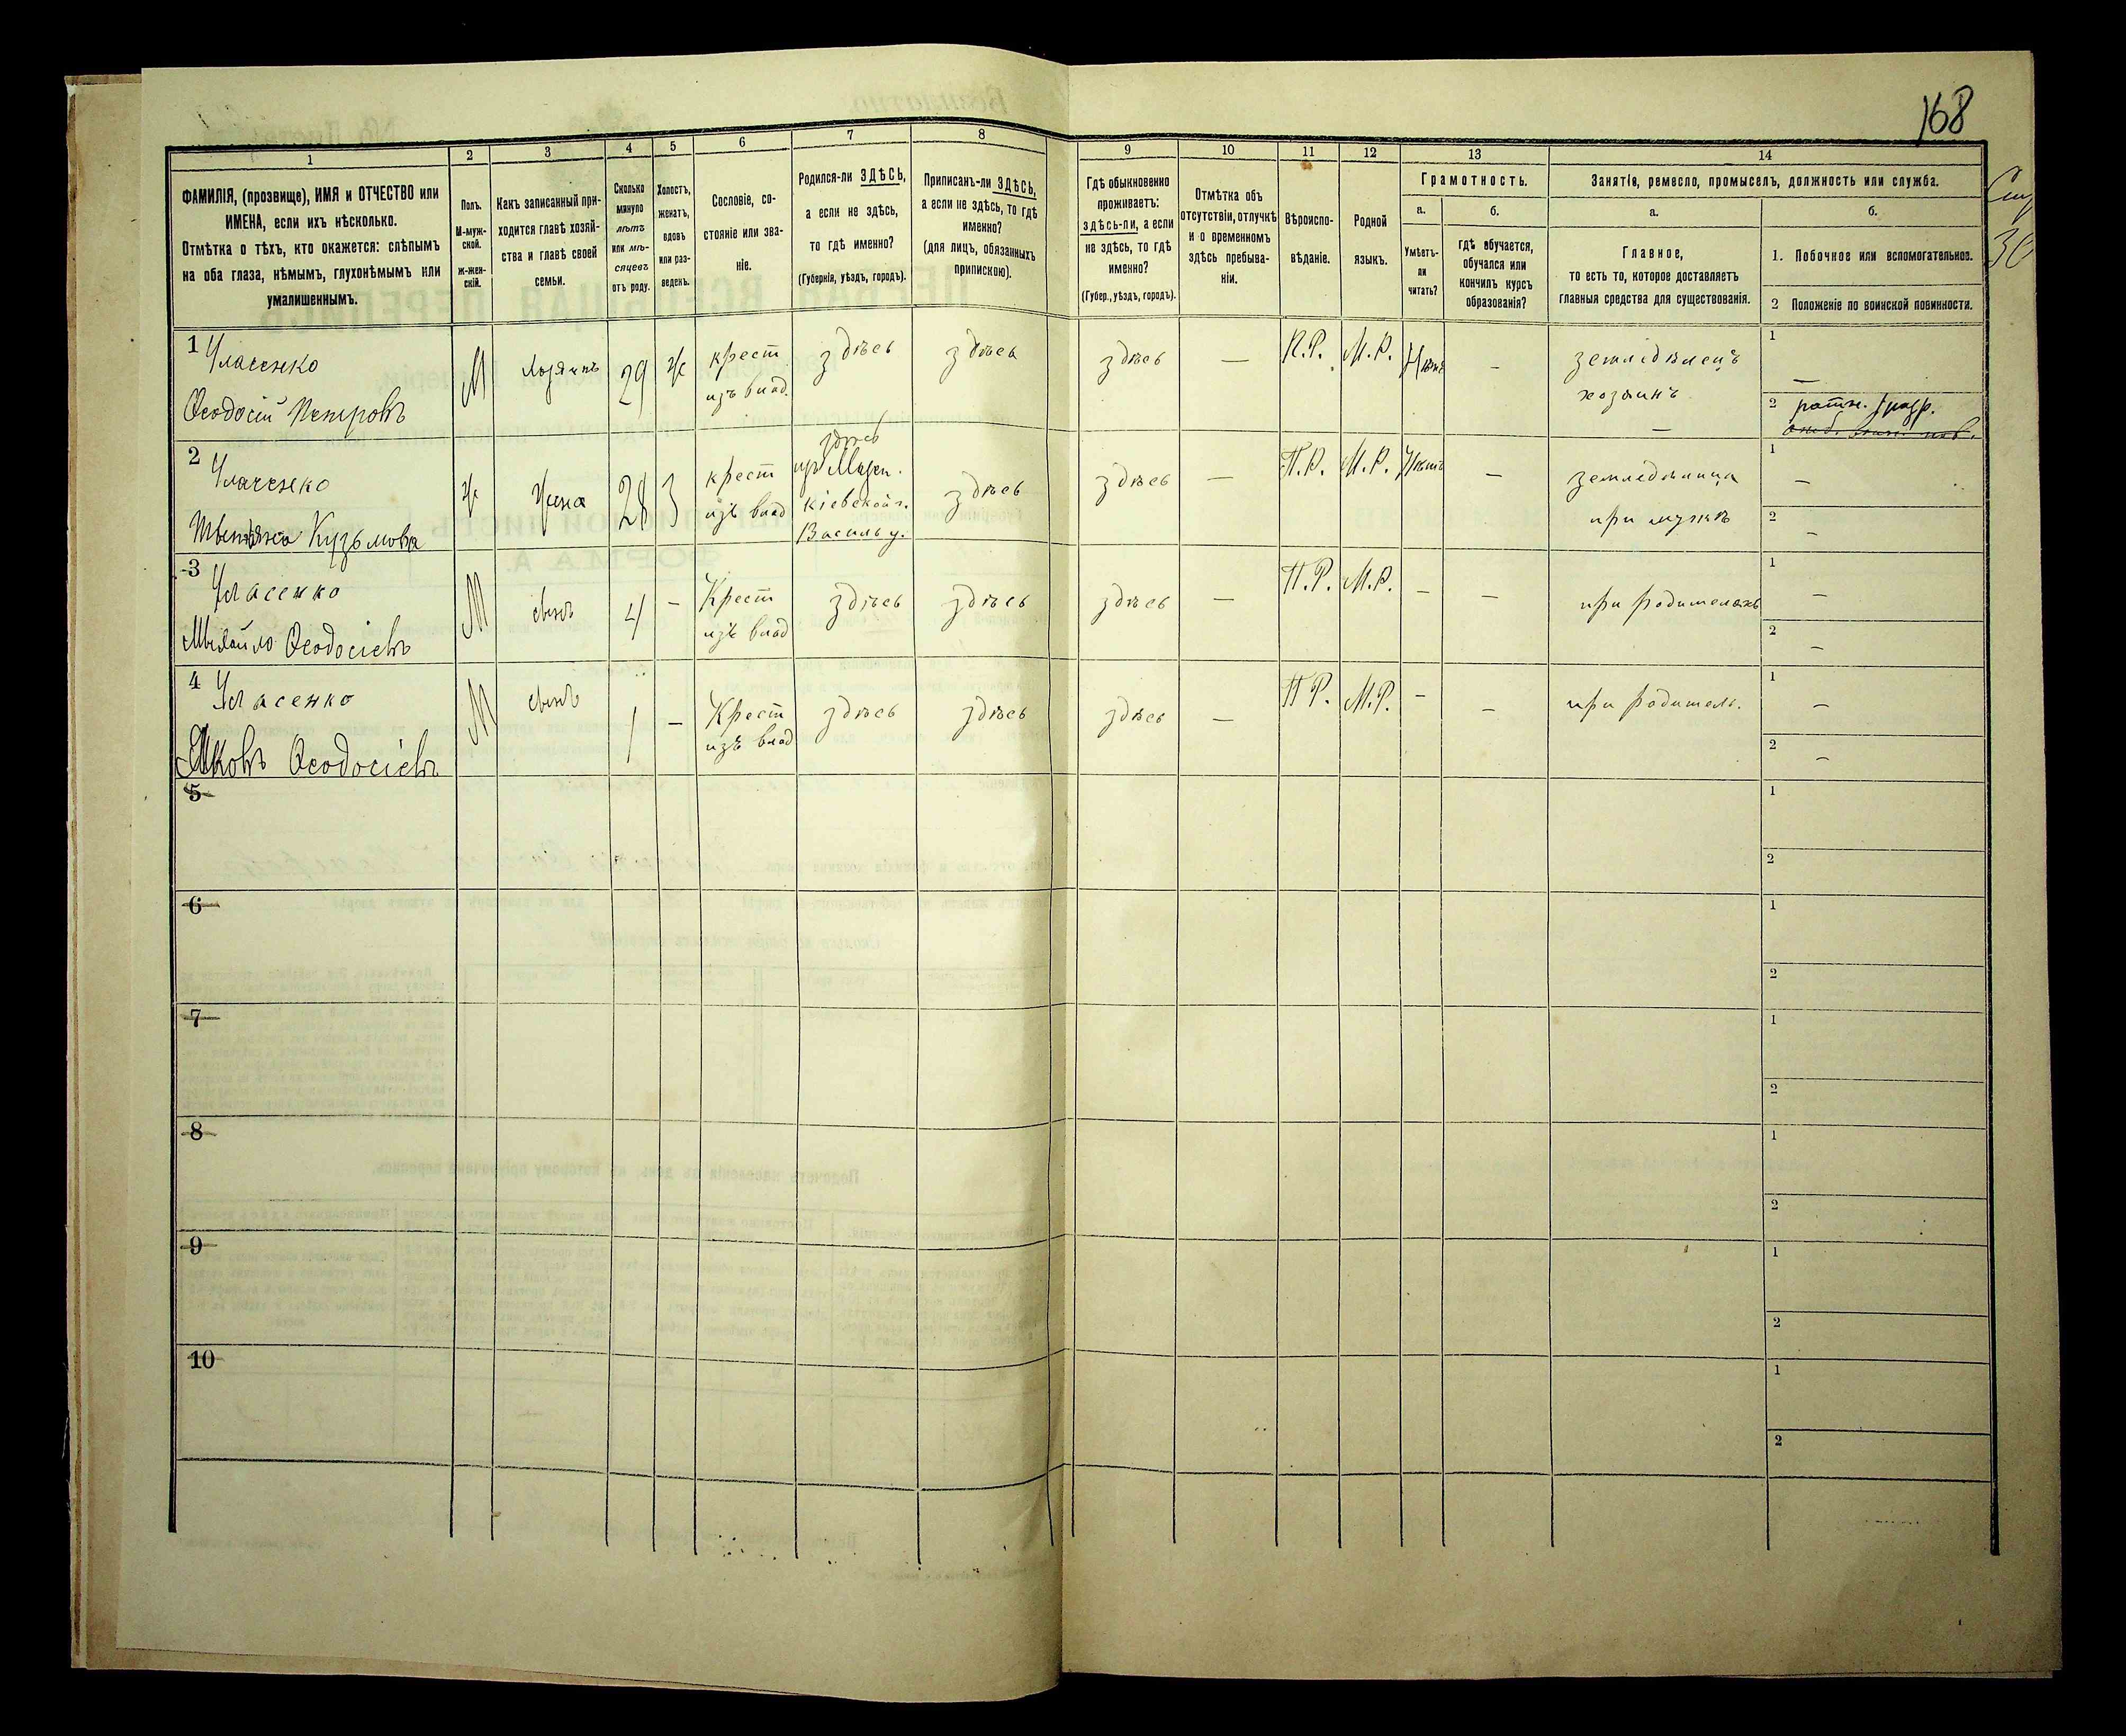 168
1
2
3
4
5
6
7
8
9
10
11
12
13
14
ФАМИЛІЯ, (прозвище), ИМЯ и ОТЧЕСТВО или
ИМЕНА, если ихъ нѣсколько.
Отмѣтка о тѣхъ, кто окажется: слѣпымъ
на оба глаза, нѣмымъ, глухонѣмымъ или
умалишеннымъ.
Полъ.
М-муж-
ской.
ж-жен-
скій.
Какъ записанный при-
ходится главѣ хозяй-
ства и главѣ своей
семьи.
Сколько
минуло
лѣтъ
или мѣ-
сяцевъ
отъ роду.
Холостъ,
женатъ,
вдовъ
или раз-
веденъ.
Сословіе, со-
стояніе или зва-
ніе.
Родился-ли ЗДѢСЬ,
а если не здѣсь,
то гдѣ именно?
(Губернія, уѣздъ, городъ).
Приписанъ-ли ЗДѢСЬ,
а если не здѣсь, то гдѣ
именно?
(для лицъ, обязанныхъ
припискою).
Гдѣ обыкновенно
проживаетъ:
здѣсь-ли, а если
не здѣсь, то гдѣ
именно?
(Губер., уѣздъ, городъ).
Отмѣтка объ
отсутствіи, отлучкѣ
и о временномъ
здѣсь пребыва-
ніи.
Вѣроиспо-
вѣданіе.
Родной
языкъ.
Грамотность.
а.
б.
Умѣетъ-
ли
читать?
гдѣ обучается,
обучался или
кончилъ курсъ
образованія?
Занятіе, ремесло, промыселъ, должность или служба.
а.
б.
Главное,
то есть то, которое доставляетъ
главныя средства для существованія.
1. Побочное или вспомогательное.
2 Положеніе по воинской повинности.
1
Феодосій Петровъ
М
хозяинъ
29
ж
крест
изъ влад.
здѣсь
здѣсь
здѣсь
—
П.Р.
М.Р.
Нѣтъ
-
земледѣлецъ
хозяинъ
—
1
—
2 ратн. 1 разр.
2
Кузьмова
ж
жена
28
З
крест
изъ влад
здѣсь
Кіевской г.
Василь у.
здѣсь
здѣсь
—
П.Р.
М.Р.
Нѣтъ
—
земледѣлица
при мужѣ
1
—
2
—
3
Михайло Феодосіевъ
М
сынъ
4
—
Крест
изъ влад
здѣсь
здѣсь
здѣсь
—
П.Р.
М.Р.
—
—
при родителяхъ
1
—
2
—
4
Яковъ Феодосіевъ
М
сынъ
1
—
Крест
изъ влад
здѣсь
здѣсь
здѣсь
—
П.Р.
М.Р.
—
—
при родител.
1
—
2
—
5
1
2
6
1
2
7
1
2
8
1
2
9
1
2
10
1
2